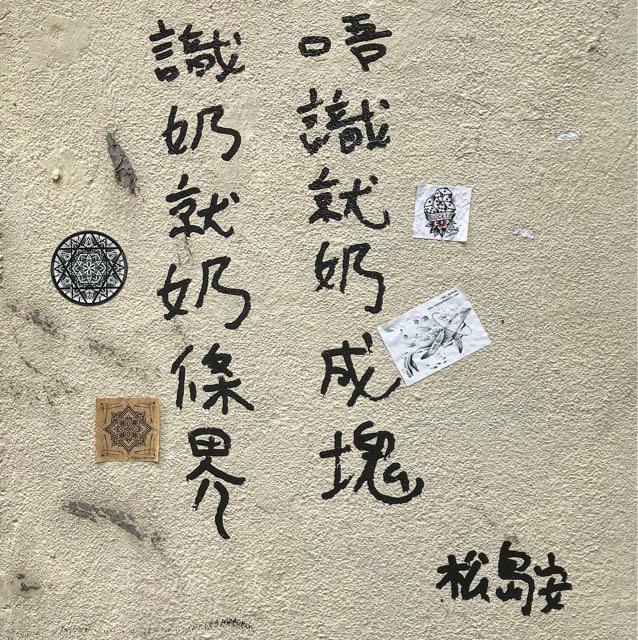 識奶就奶條界
唔識就奶成塊
松島安